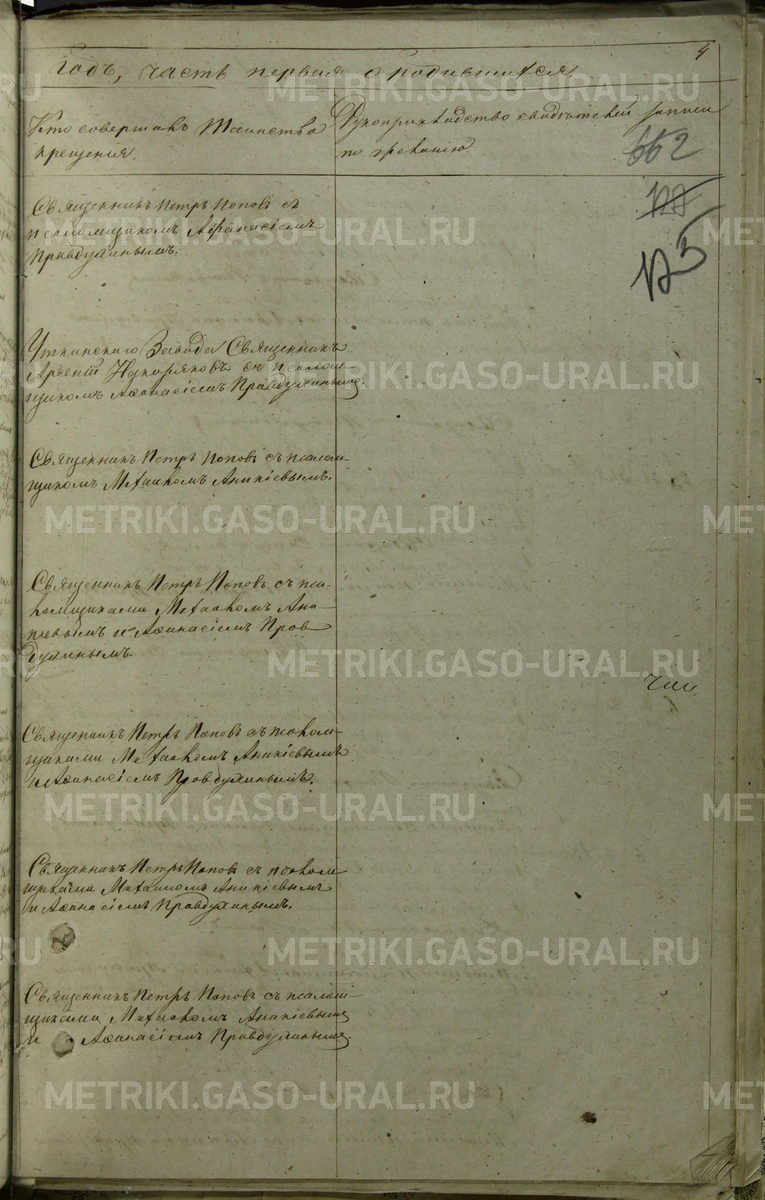 4
Годъ, часть первая о родившихся.
Кто совершалъ Таинство
крещенія.
Рукоприкладство свидѣтелей записи
по желанію.
662
125
Священникъ Петръ Поповъ съ
псаломщикомъ Афанасіемъ
Правдухинымъ.
Уткинскаго Завода Священникъ
Арсеній Накоряковъ съ псалом-
щикомъ Аѳанасіемъ Правдухинымъ.
Священникъ Петръ Поповъ съ псалом-
щикомъ Михаиломъ Аникіевымъ.
Священникъ Петръ Поповъ съ пса-
ломщиками Михаиломъ Ани-
кіевымъ и Аѳанасіемъ Прав-
духинымъ.
Священникъ Петръ Поповъ съ псалом-
щиками Михаиломъ Аникіевымъ
и Аѳанасіемъ Правдухинымъ.
Священникъ Петръ Поповъ съ псалом
щиками Михаиломъ Аникіевымъ
и Аѳанасіемъ Правдухинымъ.
Священникъ Петръ Поповъ съ псалом-
щиками Михаиломъ Аникіевымъ
и Аѳанасіемъ Правдухинымъ.
METRIKI.GASO-URAL.RU
METRIKI.GASO-URAL.RU
METRIKI.GASO-URAL.RU
METRIKI.GASO-URAL.RU
METRIKI.GASO-URAL.RU
METRIKI.GASO-URAL.RU
METRIKI.GASO-URAL.RU
METRIKI.GASO-URAL.RU